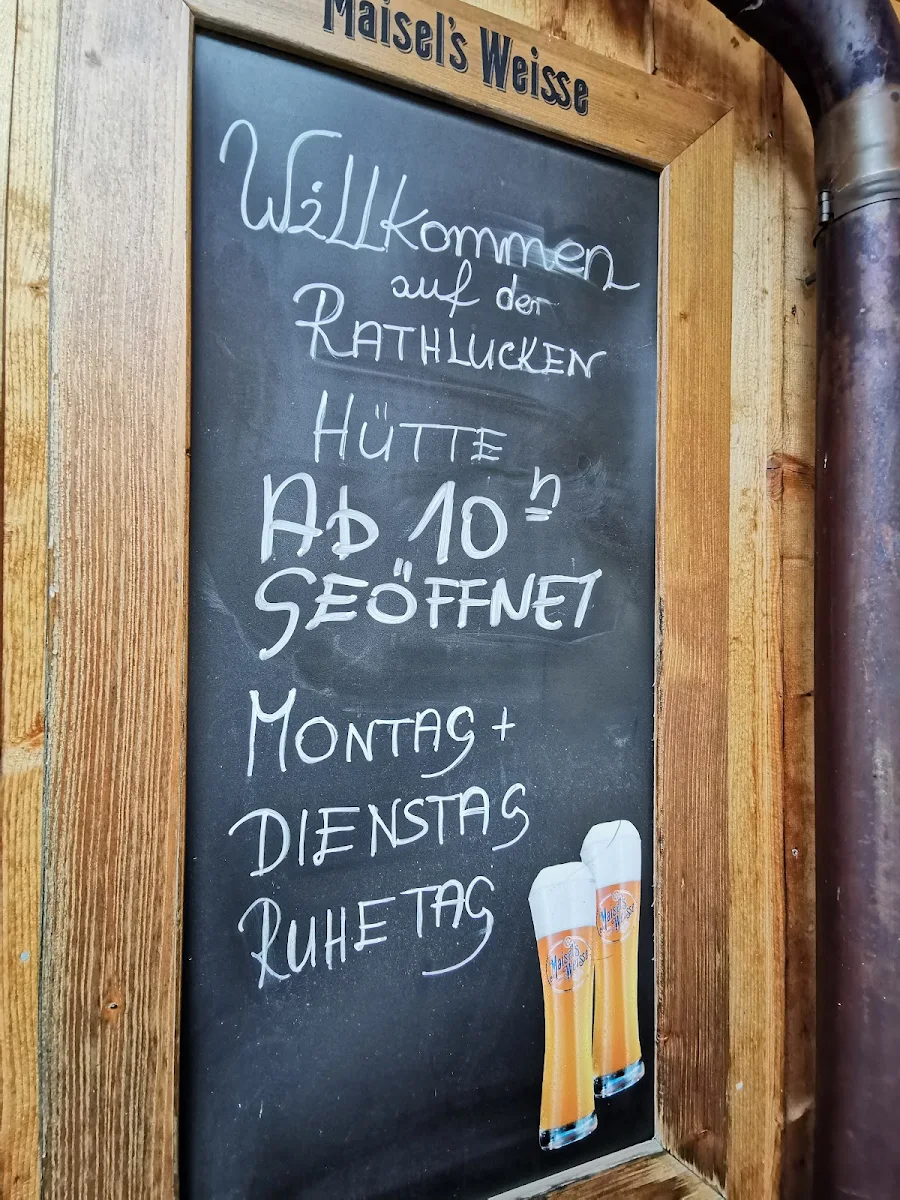 Maisel's Weisse
Willkommen
auf der
RATHLUCKEN
HÜTTE
Ab 10 h
GEÖFFNET
MONTAG +
DIENSTAG
RUHETAG
Maisel's
Weisse
Maisel's
Weisse